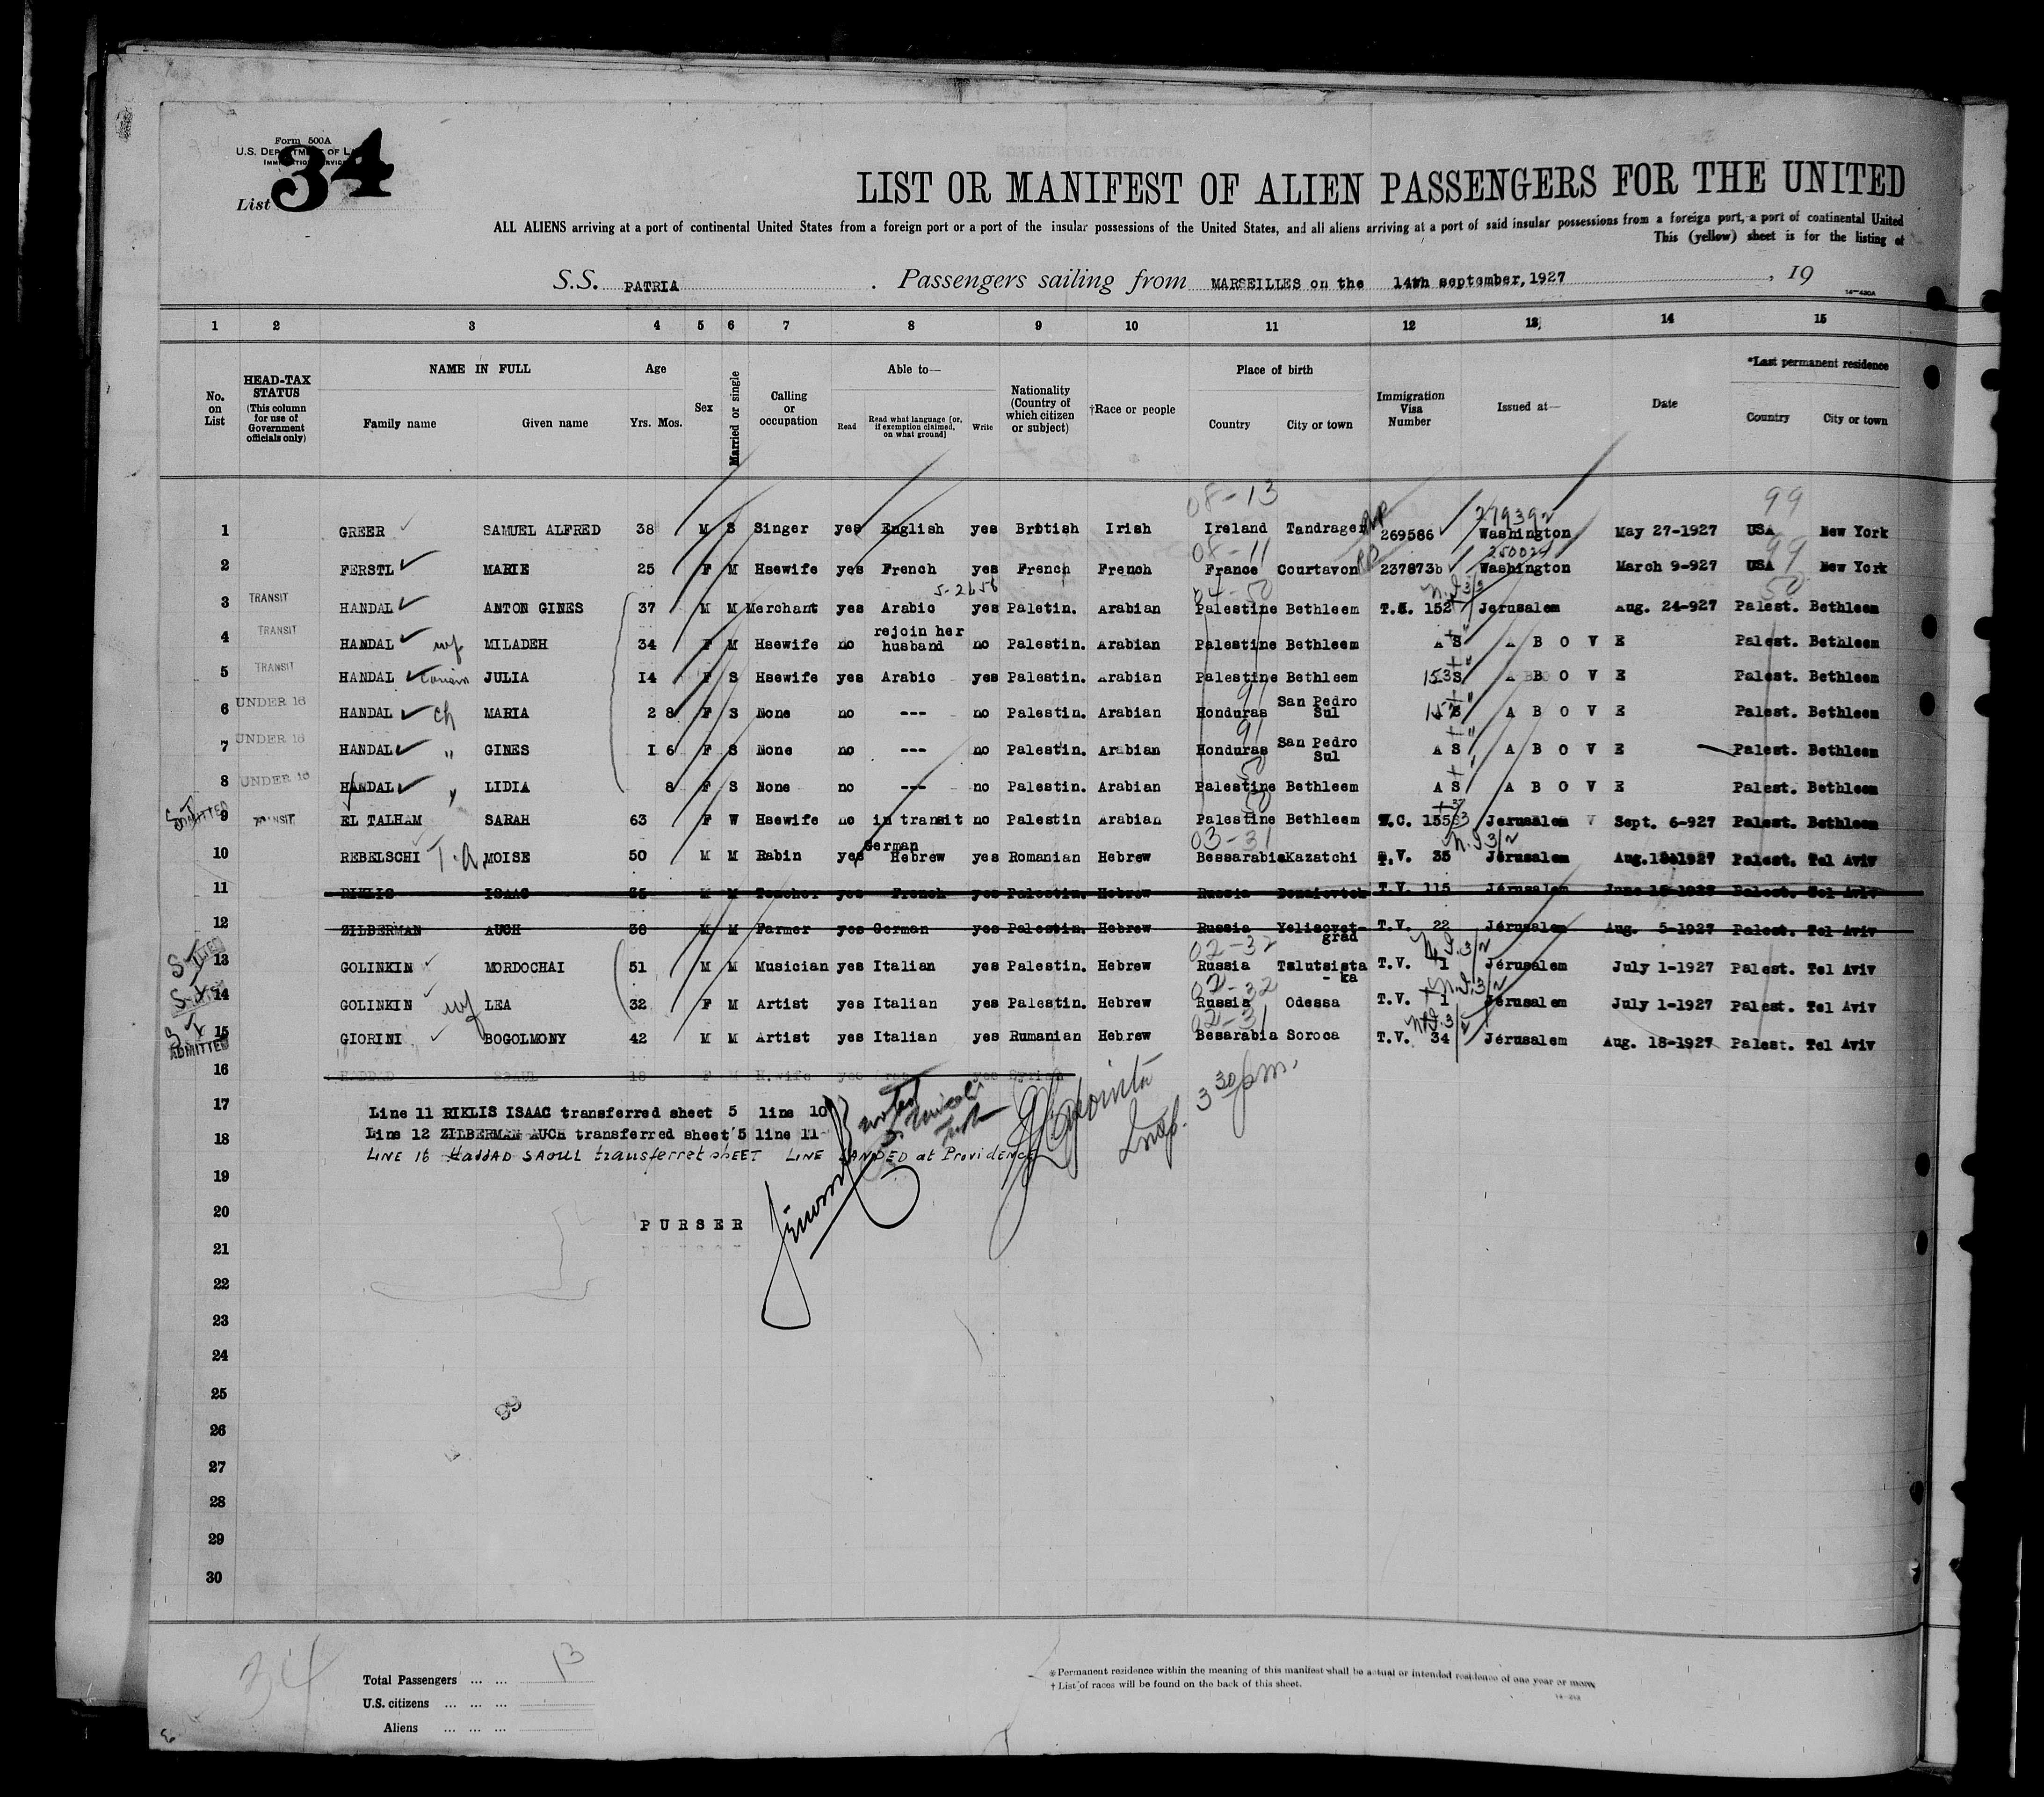 Form 500A
U.S. DEPARTMENT OF LA
34
List
LIST OR MANIFEST OF ALIEN PASSENGERS FOR THE UNITED
ALL ALIENS arriving at a port of continental United States from a foreign port or a port of the insular possessions of the United States, and all aliens arriving at a port of said insular possessions from a foreign port, a port of continental United
This (yellow) sheet is for the listing of
S.S. PATRIA . Passengers sailing from MARSEILLES on the 14th september, 1927 , 19
1 2 3 4 5 6 7 8 9 10 11 12 13 14 15
No. on List
HEAD-TAX STATUS (This column for use of Government officials only)
NAME IN FULL
Family name Given name
Age
Yrs. Mos.
Sex
Married or single
Calling or occupation
Able to—
Read Read what language (or, if exemption claimed, on what ground) Write
Nationality (Country of which citizen or subject)
†Race or people
Place of birth
Country City or town
Immigration Visa Number
Issued at—
Date
*Last permanent residence
Country City or town
08-13 279392 99
1 GREER SAMUEL ALFRED 38 M S Singer yes English yes British Irish Ireland Tandragee 269586 Washington May 27-1927 USA New York
08-11 99
2 FERSTL MARIE 25 F M Hsewife yes French yes French French France Courtavon 237873b Washington March 9-927 USA New York
04-50 N.I 3/2 50
3 TRANSIT HANDAL ANTON GINES 37 M M Merchant yes Arabic yes Paletin. Arabian Palestine Bethleem 152 Jerusalem Aug. 24-927 Palest. Bethleem
4 TRANSIT HANDAL wf MILADEH 34 F M Hsewife no rejoin her husband no Palestin. Arabian Palestine Bethleem A S A B O V E Palest. Bethleem
5 TRANSIT HANDAL JULIA I4 F S Hsewife yes Arabic yes Palestin. Arabian Palestine Bethleem 153 A B O V E Palest. Bethleem
91
6 UNDER 16 HANDAL ch MARIA 2 8 F S None no --- no Palestin. Arabian Honduras San Pedro Sul A B O V E Palest. Bethleem
91
7 UNDER 16 HANDAL " GINES I 6 F S None no --- no Palestin. Arabian Honduras San Pedro Sul A S A B O V E Palest. Bethleem
50
8 UNDER 16 HANDAL " LIDIA 8 F S None no --- no Palestin. Arabian Palestine Bethleem A S A B O V E Palest. Bethleem
50
9 TRANSIT EL TALHAM SARAH 63 F W Hsewife no in transit no Palestin Arabian Palestine Bethleem Jerusalem Sept. 6-927 Palest. Bethleem
03-31 N.I 3/2
10 REBELSCHI MOISE 50 M M Rabin yes German Hebrew yes Romanian Hebrew Bessarabia Kazatchi T.V. 35 Jérusalem Palest. Tel Aviv
11 RIKLIS ISAAC 35 M M Teacher yes French yes Palestin. Hebrew Russia T.V. 115 Jérusalem Palest. Tel Aviv
12 ZILBERMAN AUCH M M Farmer yes German yes Palestin. Hebrew Russia Yelisovet-grad T.V. 22 Jérusalem Aug. 5-1927 Palest. Tel Aviv
02-32 N.I.3/2
13 GOLINKIN MORDOCHAI 51 M M Musician yes Italian yes Palestin. Hebrew Russia T.V. 1 Jérusalem July 1-1927 Palest. Tel Aviv
02-32 N.I.3/2
14 GOLINKIN wf LEA 32 F M Artist yes Italian yes Palestin. Hebrew Russia Odessa T.V. 1 Jérusalem July 1-1927 Palest. Tel Aviv
02-31
15 ADMITTED GIORINI BOGOLMONY 42 M M Artist yes Italian yes Rumanian Hebrew Besarabia Soroca T.V. 34 Jérusalem Aug. 18-1927 Palest. Tel Aviv
16 HADDAD SAOUL 18 F M H.wife yes yes Syrian
3 30 pm.
17 Line 11 RIKLIS ISAAC transferred sheet 5 line 10
18 Line 12 ZILBERMAN AUCH transferred sheet 5 line 11
LINE 16 HADDAD SAOUL transferret sheet LINE LANDED at Providence
19
20 PURSER
21
22
23
24
25
26
27
28
29
30
34
Total Passengers ... ... 13
U.S. citizens ... ... ...
Aliens ... ... ...
*Permanent residence within the meaning of this manifest shall be actual or intended residence of one year or more.
†List of races will be found on the back of this sheet.